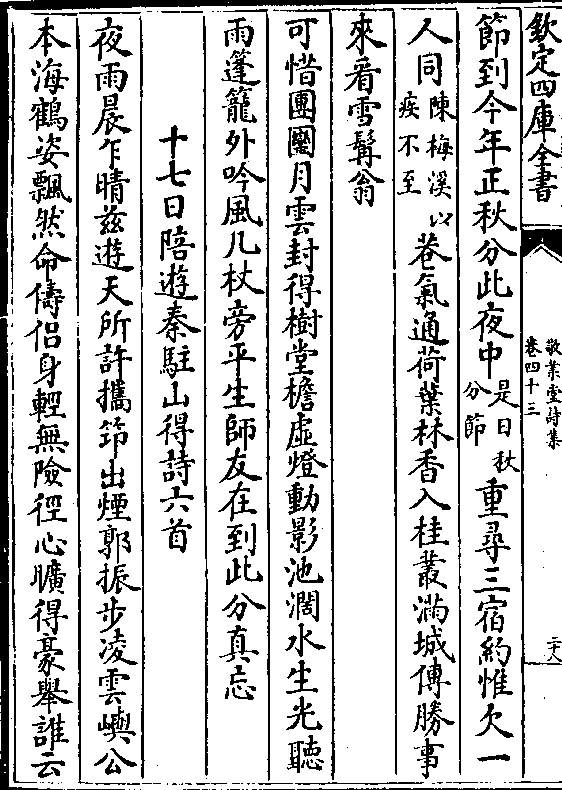 欽定四庫全書
敬業堂詩集
卷四十三
二十八
節到今年正秋分此夜中是日秋分節重尋三宿約惟欠一
人同陳梅溪以疾不至巷氣通荷葉林香入桂叢滿城傳勝事
來看雪髯翁
可惜團團月雲封得樹堂檐虛燈動影池濶水生光聽
雨蓬籠外吟風几杖旁平生師友在到此分真忘
十七日陪遊秦駐山得詩六首
夜雨晨乍晴兹遊天所許攜笻出煙郭振步凌雲嶼公
本海鶴姿飄然命儔侣身輕無險徑心曠得豪舉誰云